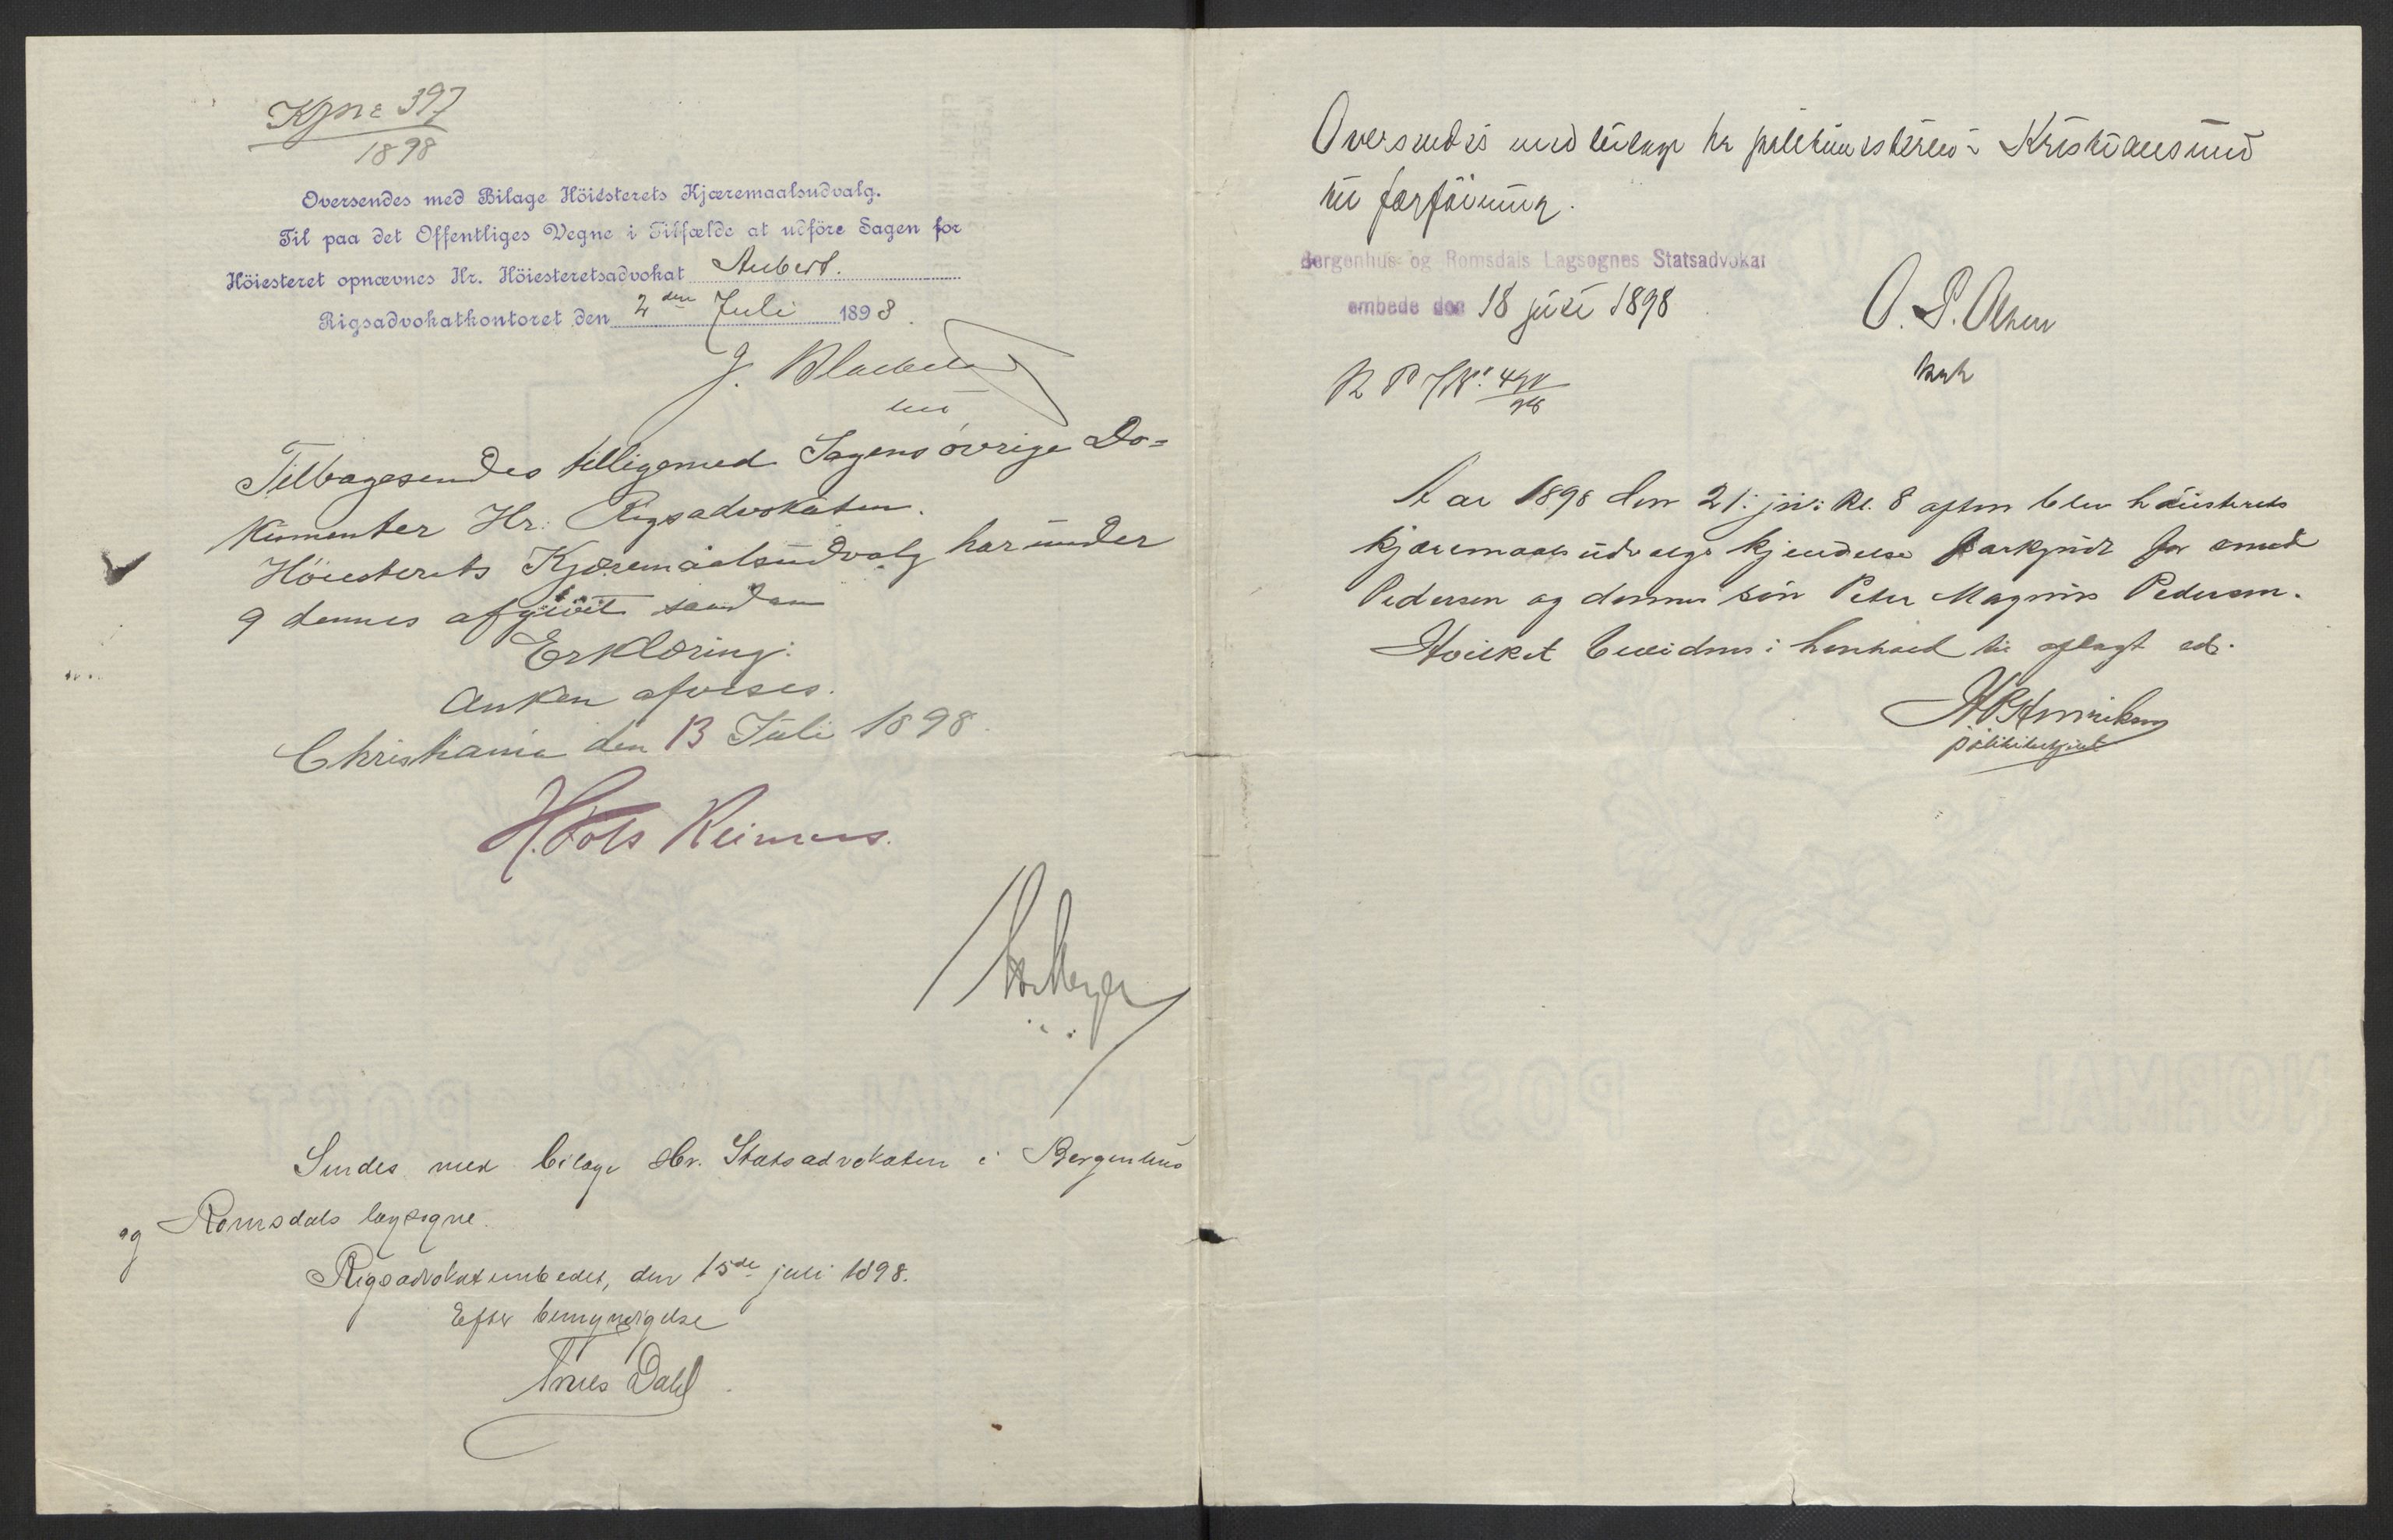 Kjnr 397
1898
Oversendes med Bilage Höiesterets Kjæremaalsudvalg.
Til paa det Offentliges Vegne i Tilfælde at udföre Sagen for
Höiesteret opnævnes Hr. Höiesteretsadvokat Aubert.
Rigsadvokatkontoret den 2den Juli 1898.
J.
Tilbagesendes tilligemed Sagens øvrige Do=
kumenter Hr. Rigsadvokaten.
Høiesterets Kjæremaalsudvalg har under
9 dennes afgivet saadan
Erklæring:
Anken afvises.
Christiania den 13 Juli 1898.
H. Reimers.
Sendes med bilage Hr. Statsadvokaten i Bergenhus
og Romsdals lagsogne.
Rigsadvokatembedet, den 15de juli 1898.
Efter bemyndigelse
Dahl
Oversendes med bilage hr politimesteren i Kristiansund
til forføining.
Bergenhus- og Romsdals Lagsognes Statsadvokat
embede den 18 juli 1898
O. S. Olsen
Aar 1898 den 21. juli kl. 8 aften blev høiesterets
kjæremaalsudvalgs kjendelse forkyndt for
Pedersen og dennes søn Peter Magnus Pedersen.
Hvilket bevidnes i henhold til aflagt ed.
Henriksen
politibetjent
POST
NORMAL
POST
NORMAL